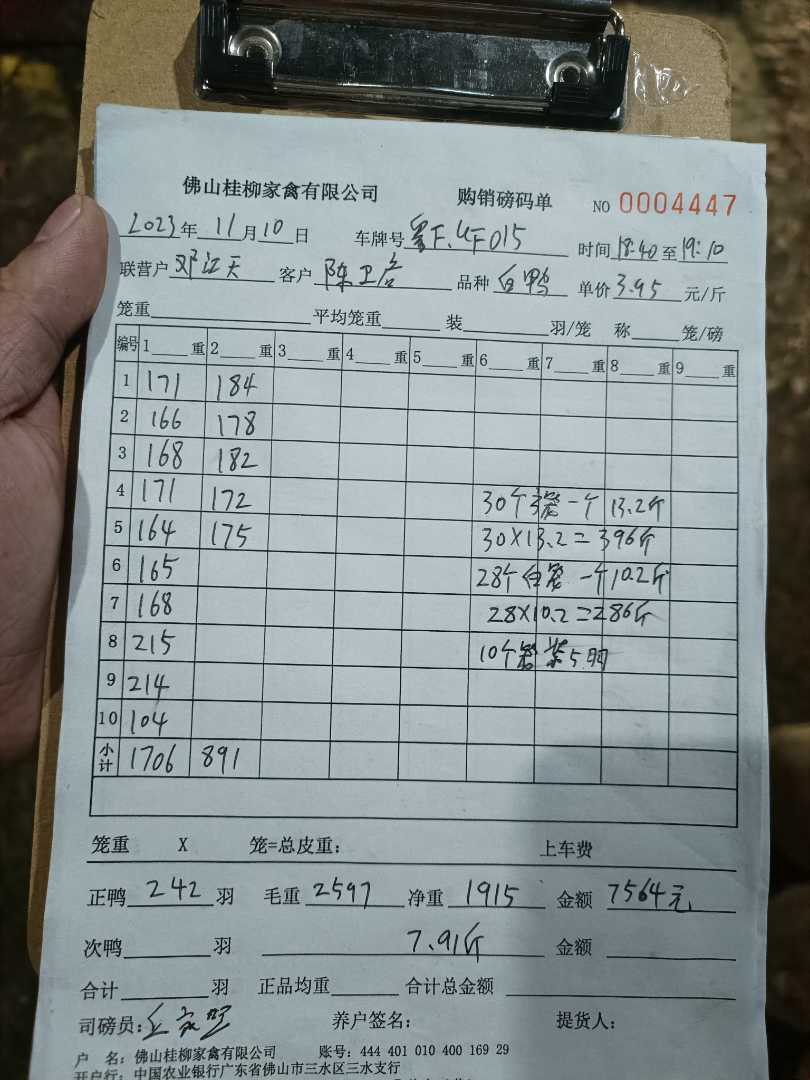 佛山桂柳家禽有限公司 购销磅码单 NO 0004447
2023年 11月10日 车牌号 粤F.4F015 时间18:40至19:10
联营户 邓江天 客户 陈卫店 品种 白鸭 单价3.95元/斤
笼重 平均笼重 装 羽/笼 称 笼/磅
编号 1 重 2 重 3 重 4 重 5 重 6 重 7 重 8 重 9 重
1 171 184
2 166 178
3 168 182
4 171 172 30个 笼一个 13.2斤
5 164 175 30X13.2=396斤
6 165 28个白笼 一个10.2斤
7 168 28X10.2=286斤
8 215 10个笼装5羽
9 214
10 104
小计 1706 891
笼重 X 笼=总皮重: 上车费
正鸭 242 羽 毛重 2597 净重 1915 金额 7564元
次鸭 羽 7.91斤 金额
合计 羽 正品均重 合计总金额
司磅员: 养户签名: 提货人:
户 名: 佛山桂柳家禽有限公司 账号: 444 401 010 400 169 29
开户行: 中国农业银行广东省佛山市三水区三水支行